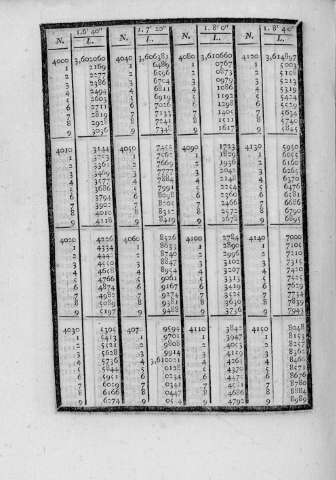 1. 6' 40" 1. 7' 20" 1. 8' 0" 1. 8' 40"
N. L. N. L. N. L. N. L.
4000 3,602060 4040 3,606381 4080 3,610660 4120 3,614897
1 2169 1 6489 1 0767 1 5003
2 2277 2 6596 2 0873 2 5108
3 2386 3 6704 3 0979 3 5213
4 2494 4 6811 4 1086 4 5319
5 2603 5 6919 5 1192 5 5424
6 2711 6 7026 6 1298 6 5529
7 2819 7 7133 7 1405 7 5634
8 2928 8 7241 8 1511 8 5740
9 3036 9 7348 9 1617 9 5845
4010 3144 4050 7455 4090 1723 4130 5950
1 3253 1 7562 1 1829 1 6055
2 3361 2 7669 2 1936 2 6160
3 3469 3 7777 3 2042 3 6265
4 3577 4 7884 4 2148 4 6370
5 3686 5 7991 5 2254 5 6476
6 3794 6 8098 6 2360 6 6581
7 3902 7 8205 7 2466 7 6686
8 4010 8 8312 8 2572 8 6790
9 4118 9 8419 9 2678 9 6895
4020 4226 4060 8526 4100 2784 4140 7000
1 4334 1 8633 1 2890 1 7105
2 4442 2 8740 2 2996 2 7210
3 4550 3 8847 3 3102 3 7315
4 4658 4 8954 4 3207 4 7420
5 4766 5 9061 5 3313 5 7525
6 4874 6 9167 6 3419 6 7629
7 4982 7 9274 7 3524 7 7734
8 5089 8 9381 8 3630 8 7839
9 5197 9 9488 9 3736 9 7943
4030 5305 407 9594 4110 3842 4150 8048
1 5413 1 9701 1 3947 1 8153
2 5521 2 9808 2 4053 2 8257
3 5628 3 9914 3 4159 3 8362
4 5736 4 3,610021 4 4264 4 8466
5 5844 5 0128 5 4370 5 8571
6 5951 6 0234 6 4475 6 8676
7 6059 7 0341 7 4581 7 8780
8 6166 8 0447 8 4686 8 8884
9 6274 9 0554 9 4792 9 8989